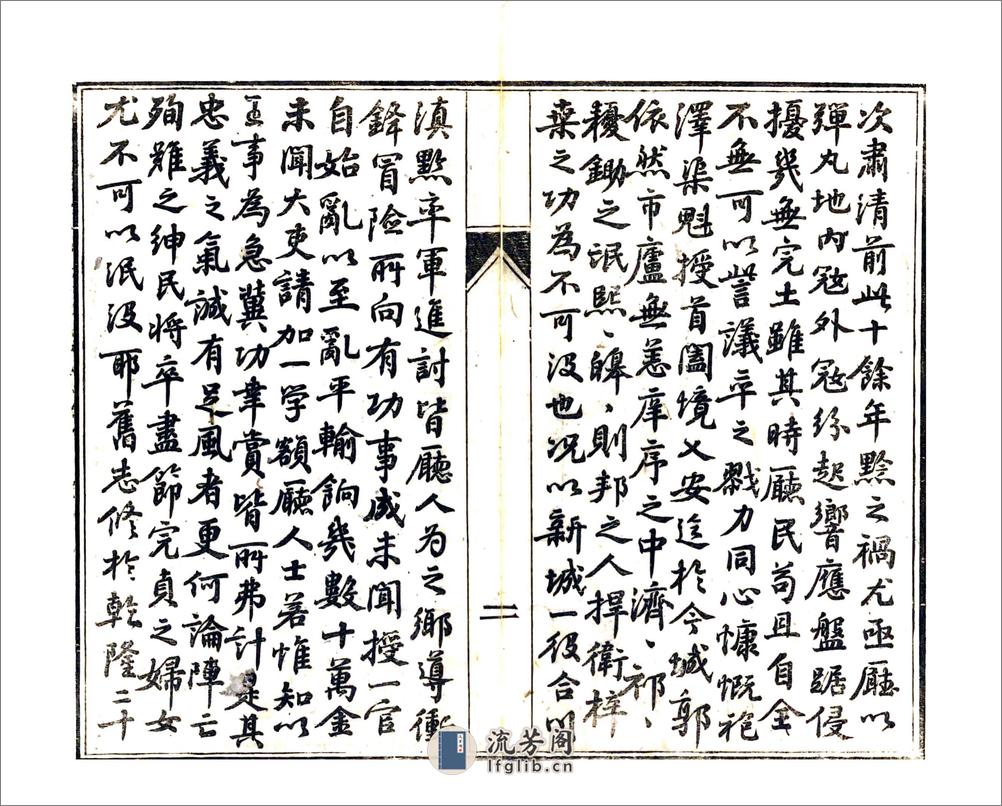 次肅清前此十餘年黔之禍尤亟廳以
彈丸地內冦外冦紛起響應盤踞侵
擾幾無完土雖其時廳民苟且自全
不無可以訾議卒之戮力同心慷慨袍
澤渠魁授首闔境乂安迄於今城郭
依然市廬無恙庠序之中濟、祁、
耰鋤之氓熙、皞、則邦之人捍衛梓
桑之功為不可沒也况以新城一役合以
滇黔卒軍進討皆廳人为之鄉導衝
鋒冒險所向有功事成未聞授一官
自始亂以至亂平輸餉幾數十萬金
未聞大吏請加一学額廳人士若惟知以
王事為急冀功幸賞皆所弗计是其
忠義之氣誠有足風者更何論陣亡
殉難之紳民将卒盡節完貞之婦女
尤不可以泯没耶舊志修於乾隆二十
二
流芳阁
lfglib.cn